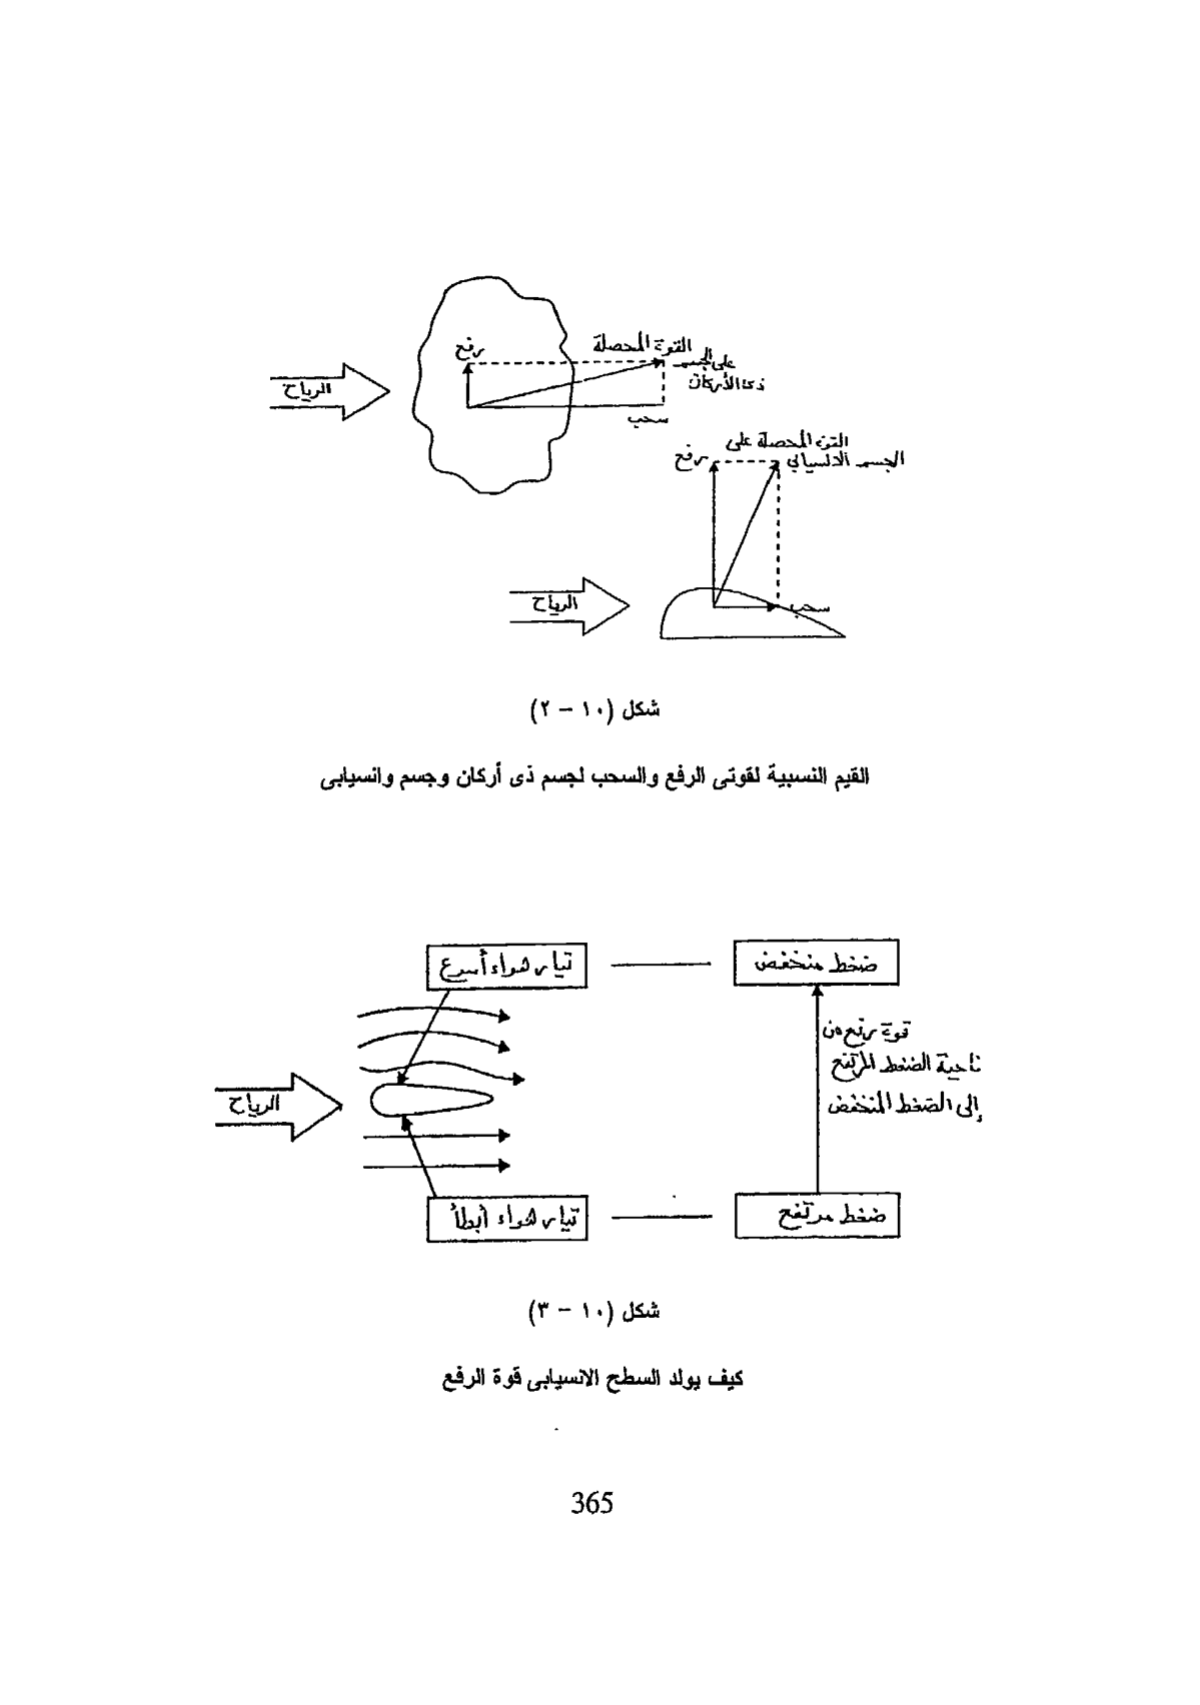 القوة المحصلة
على الجسم
ذى الأركان
رفع
الرياح
سحب
القوة المحصلة على
الجسم الانسيابي
رفع
الرياح
سحب
شكل (١٠ – ٢)
القيم النسبية لقوتى الرفع والسحب لجسم ذى أركان وجسم وانسيابى
تيار هواء أسرع
ضغط منخفض
قوة رفع من
ناحية الضغط المرتفع
إلى الضغط المنخفض
الرياح
تيار هواء أبطأ
ضغط مرتفع
شكل (١٠ – ٣)
كيف يولد السطح الانسيابى قوة الرفع
365